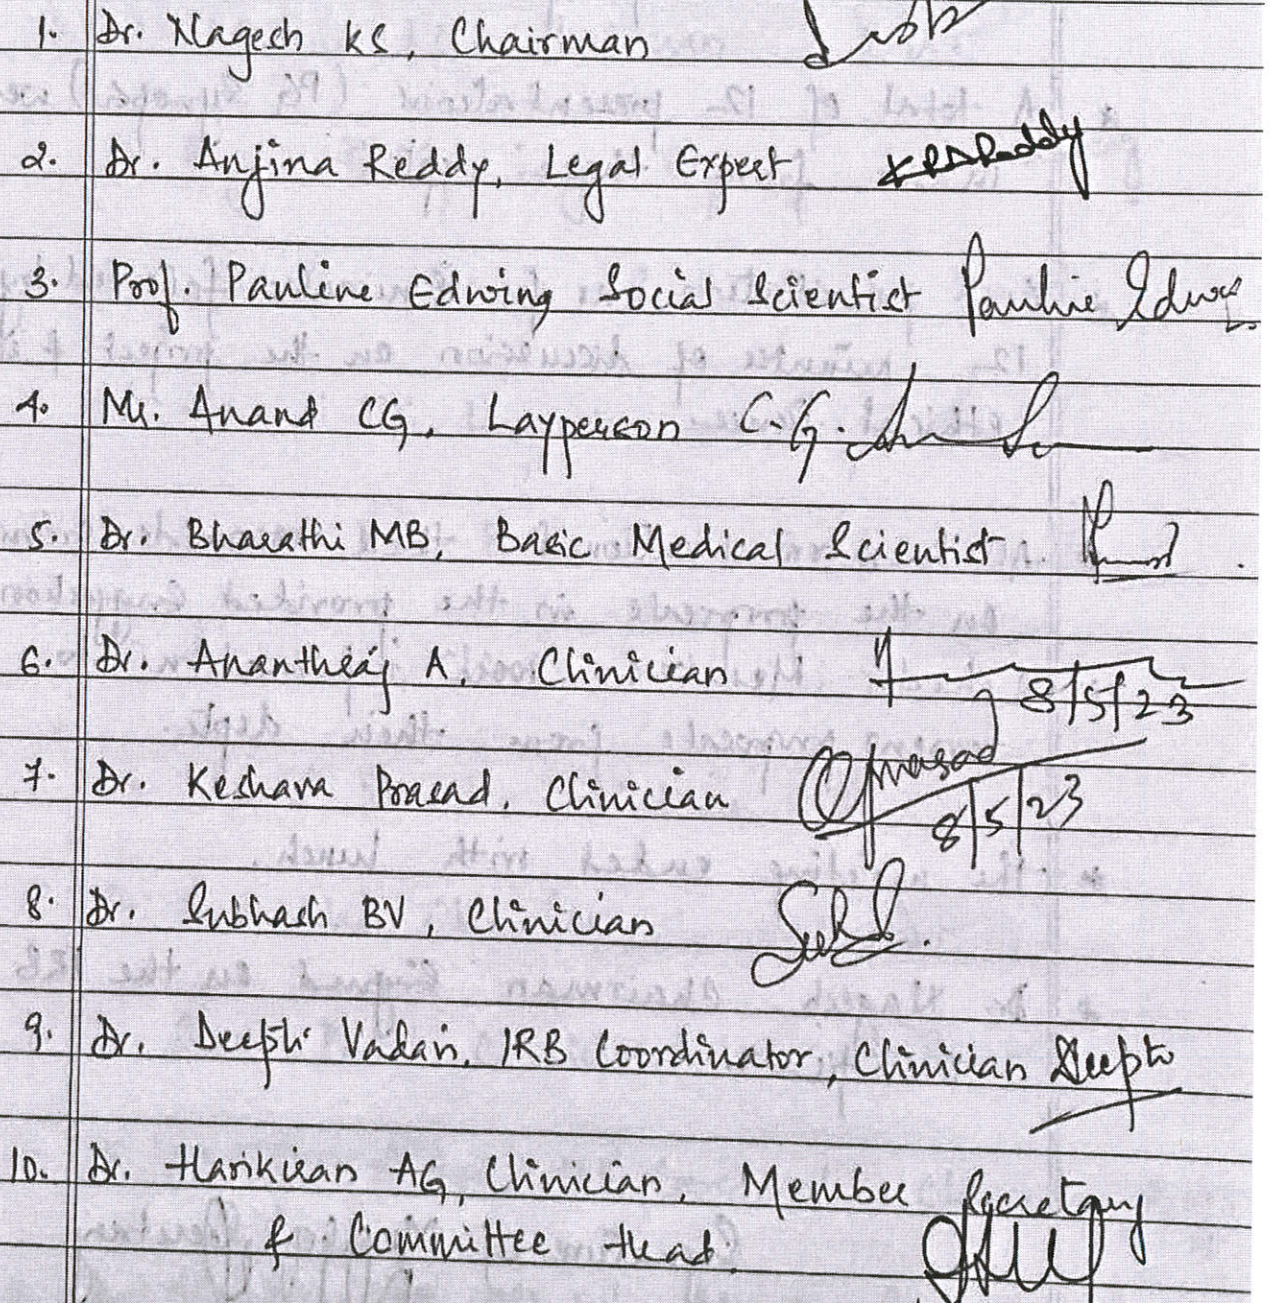 1. Dr. Nagesh KS, Chairman
2. Dr. Anjina Reddy, Legal Expert KRSReddy
3. Prof Pauline Edwing Social Scientist Pauline Edwing
4. Mr. Anand CG, Layperson C.G.
5. Dr. Bharathi MB, Basic Medical Scientist.
6. Dr. Anantharaj A, Clinician
8/5/23
7. Dr. Keshava Prasad, Clinician Prasad
8/5/23
8. Dr. Subhash BV, Clinician
9. Dr. Deepti Vadavi, IRB Coordinator, Clinician Deepti
10. Dr. Harikiran AG, Clinician, Member Secretary
& Committee Head.